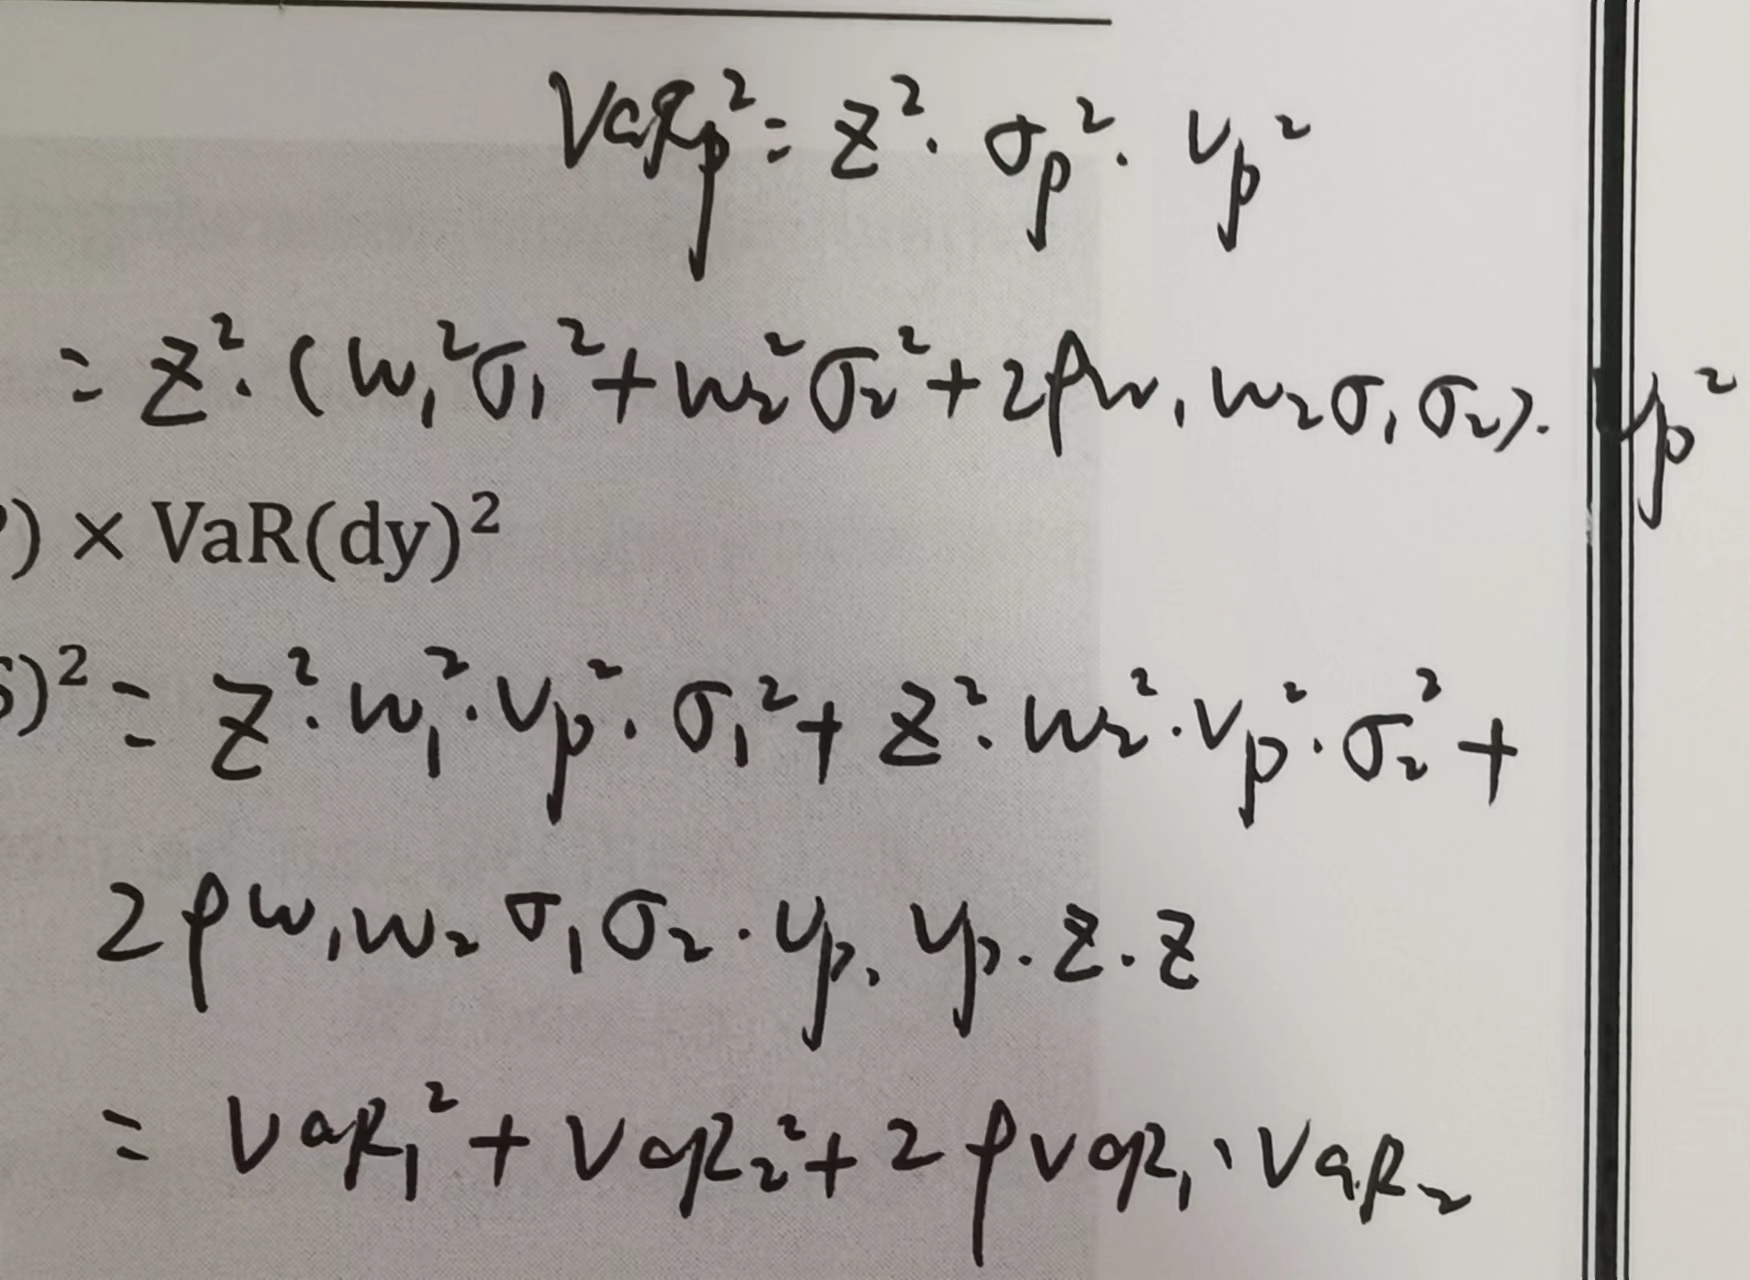 VaRp² = z² · σp² · Vp²
= z² · (w₁²σ₁² + w₂²σ₂² + 2ρw₁w₂σ₁σ₂) · Vp²
) × VaR(dy)²
)² = z² · w₁² · Vp² · σ₁² + z² · w₂² · Vp² · σ₂² +
2ρw₁w₂σ₁σ₂ · Vp · Vp · z · z
= VaR₁² + VaR₂² + 2ρVaR₁ · VaR₂